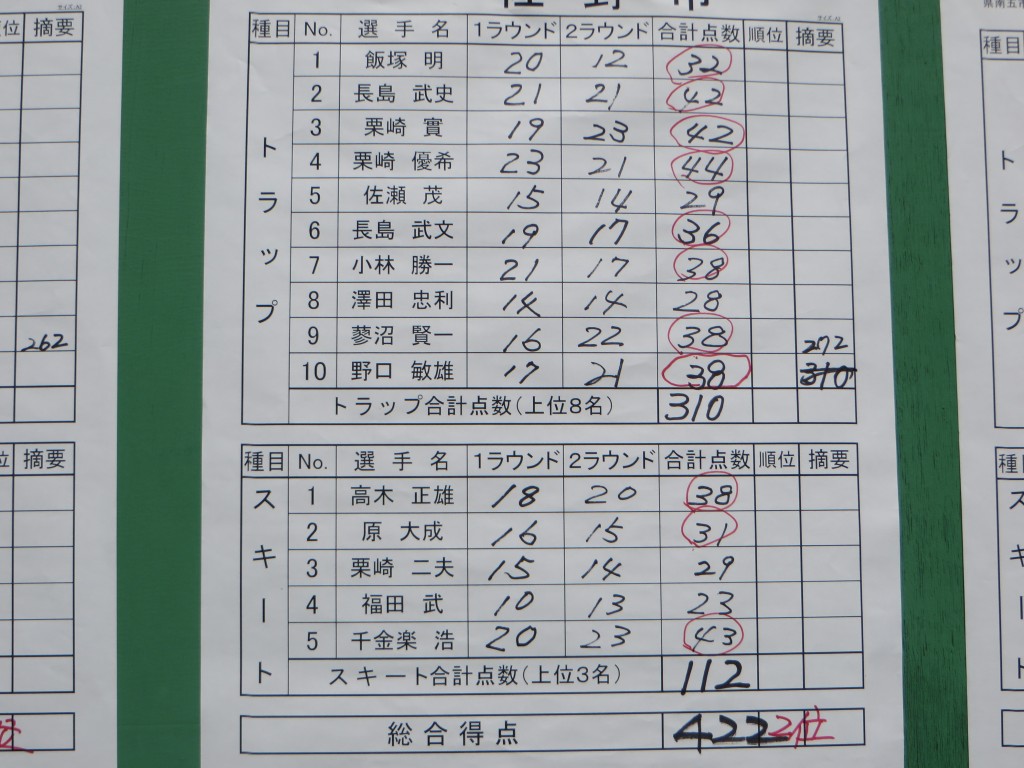 佐野市
種目 No. 選手名 1ラウンド 2ラウンド 合計点数 順位 摘要
トラップ
1 飯塚 明 20 12 32
2 長島 武史 21 21 42
3 栗崎 實 19 23 42
4 栗崎 優希 23 21 44
5 佐瀬 茂 15 14 29
6 長島 武文 19 17 36
7 小林 勝一 21 17 38
8 澤田 忠利 14 14 28
9 蓼沼 賢一 16 22 38 272
10 野口 敏雄 17 21 38 310
トラップ合計点数(上位8名) 310
種目 No. 選手名 1ラウンド 2ラウンド 合計点数 順位 摘要
スキート
1 高木 正雄 18 20 38
2 原 大成 16 15 31
3 栗崎 二夫 15 14 29
4 福田 武 10 13 23
5 千金楽 浩 20 23 43
スキート合計点数(上位3名) 112
総合得点 422 2位
位 摘要
262
位 摘要
位
種目
トラップ
種目
スキート